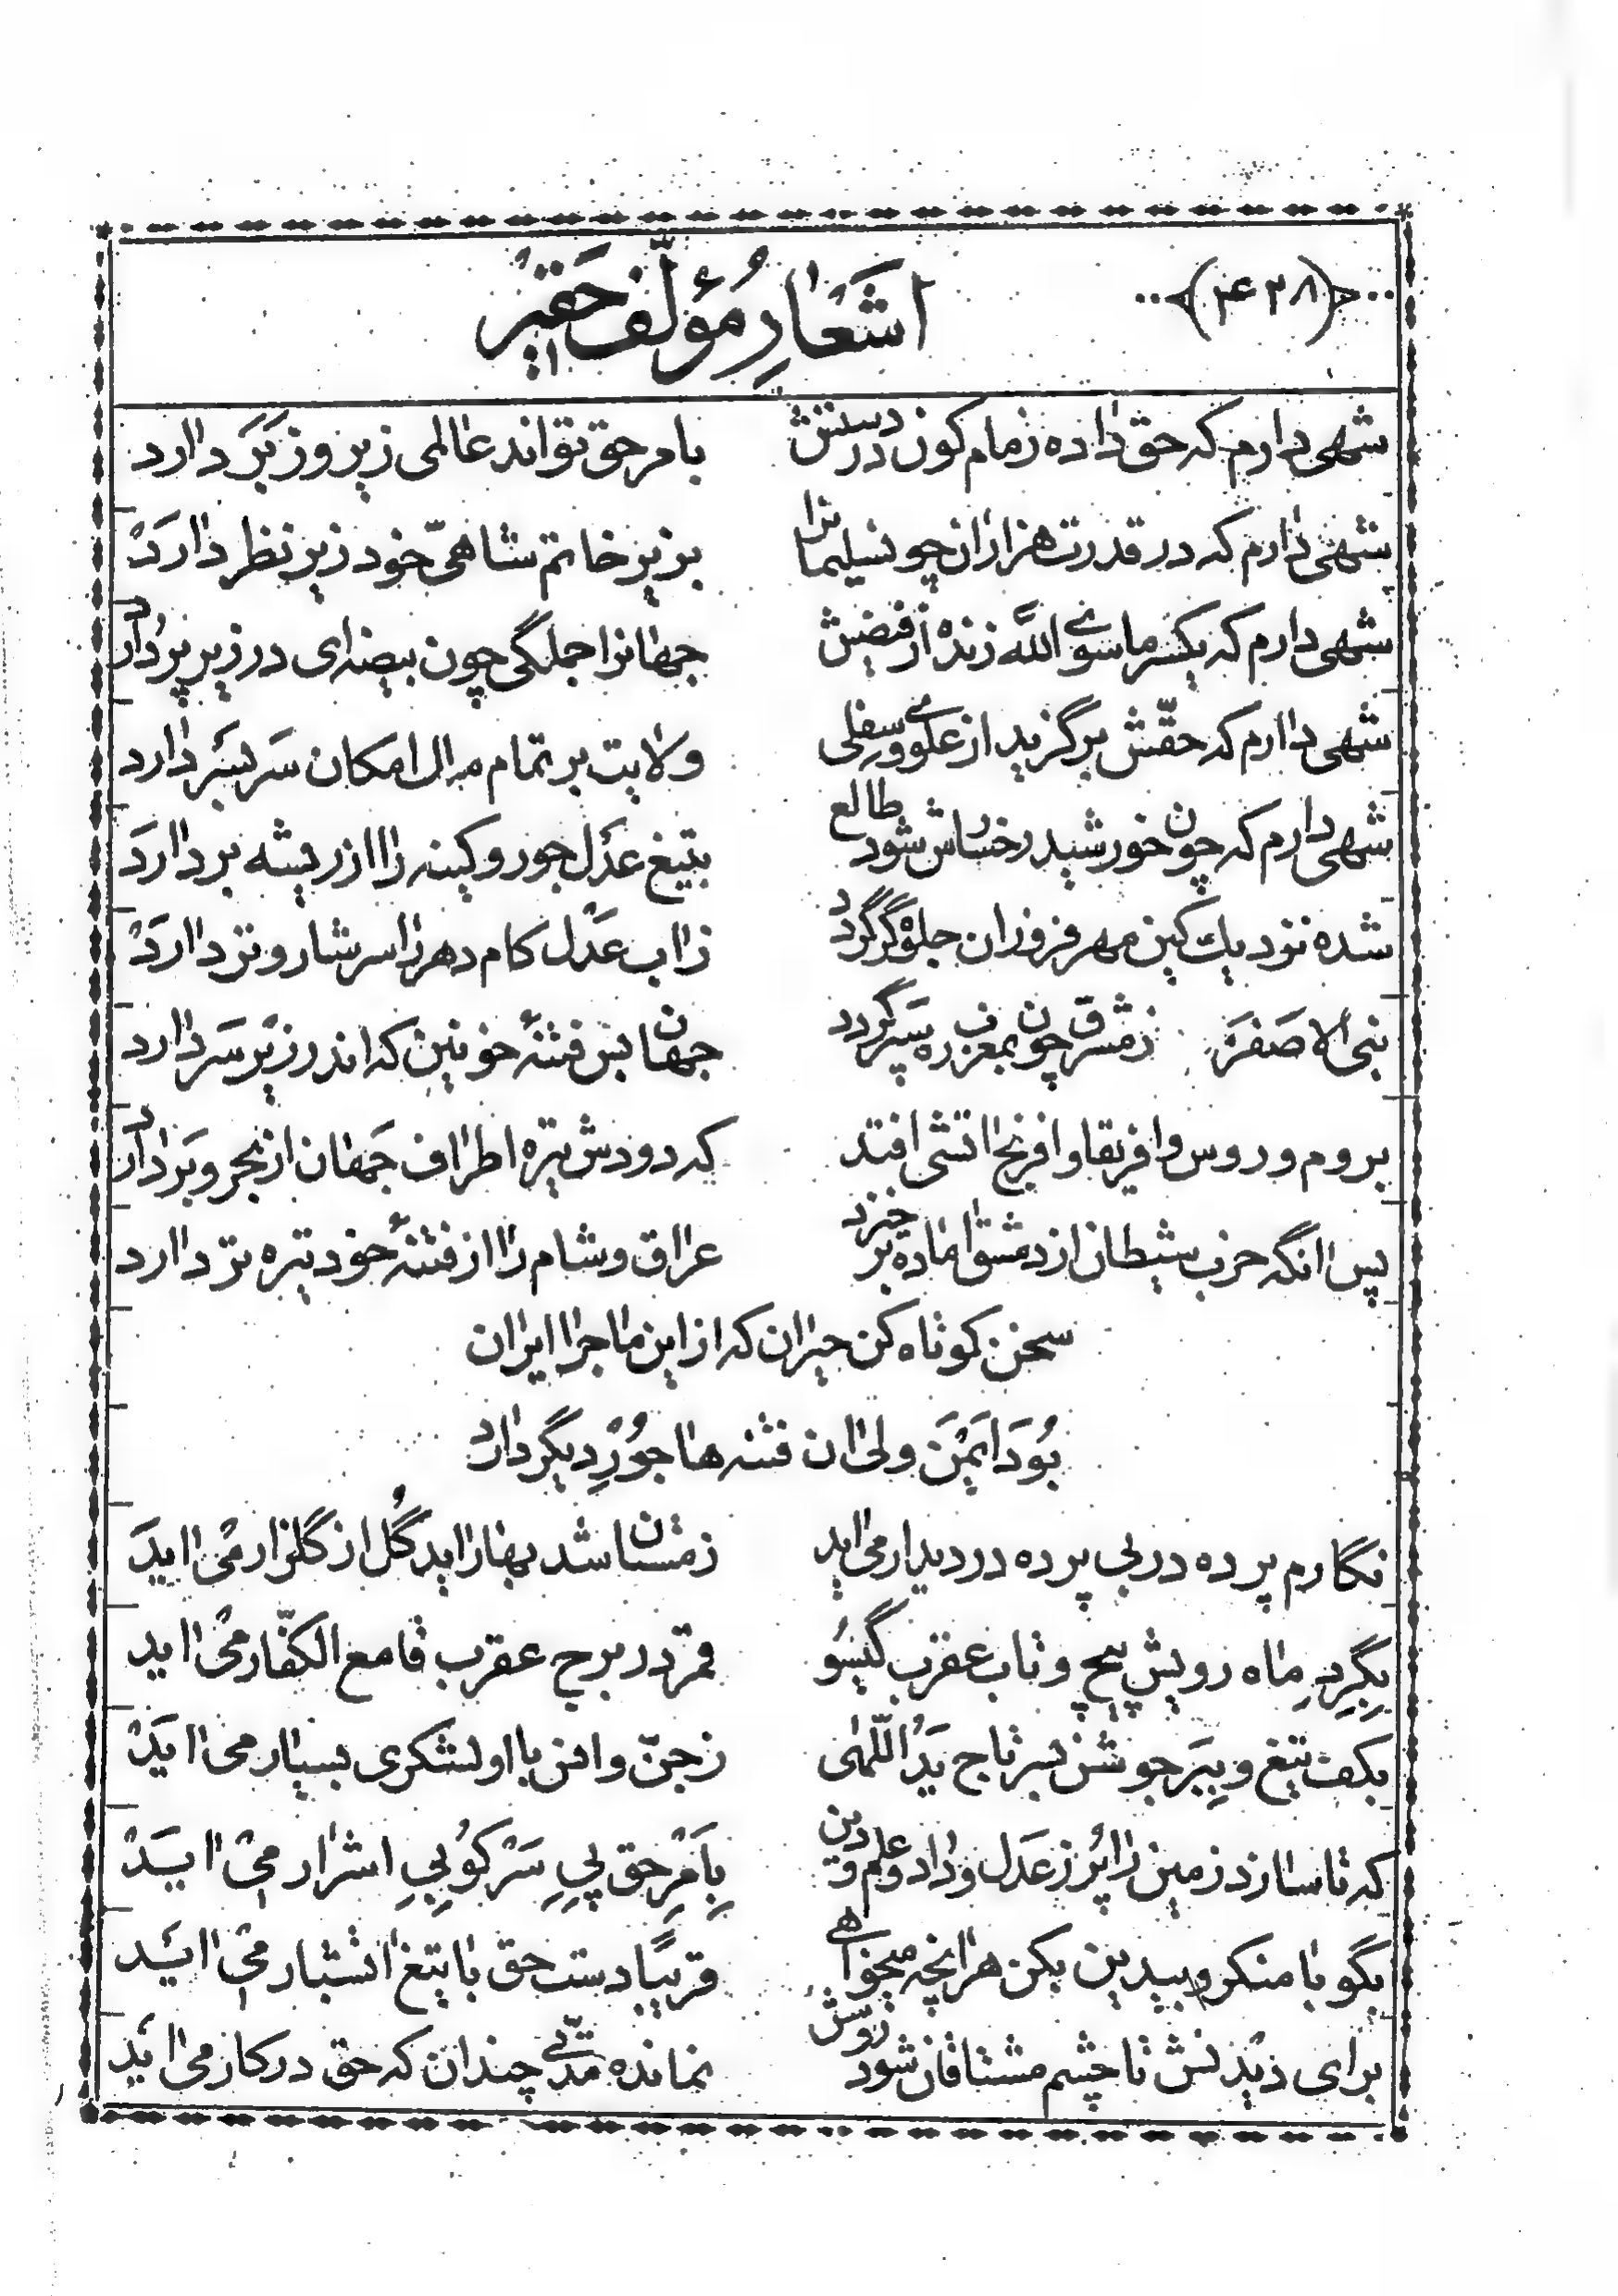 ﴿۴۳۸﴾ اشعار مؤلّف حقیر
شهی دارم که حق داده زمام کون در دستش بامر حق تواند عالمی زیر و زبر دارد
شهی دارم که در قدرت هزاران چو نسلیمانرا بزیر خاتم شاهیّ خود زیر نظر دارد
شهی دارم که یکسر ماسوی اللّه زنده از فیضش جهانرا جملگی چون بیضه‌ای در زیر پر دارد
شهی دارم که حقّش برگزید از علوی و سفلی ولایت بر تمام مال امکان سَر بسَر دارد
شهی دارم که چون خورشید رخسارش شود طالع بتیغ عَدل جور و کینه را از ریشه بر دارد
شده نزدیك کین مهر فروزان جلوه‌گر گردد زاب عَدل کام دهر را سرشار و تر دارد
بنی الاصفر زمشرق چون بمغرب ره سپر گردد جهان بس فتنهٔ خونین که اندر زیر سَر دارد
بروم و روس و افریقا و افرنج اتشی افتد که دودش تیره اطراف جَهان از بحر و بَر دارد
پس انگه حزب شیطان از دمشق اماده بر خیزد عراق و شام را از فتنهٔ خود تیره تر دارد
سخن کوتاه کن حیران که از این ماجرا ایران
بُوَد ایمَن ولی ان فتنه ها جورِ دیگر دارد
نگارم پرده در بی پرده در دیدار می اید زمستان شد بهار اید گُل از گلزار می اید
بِگِردِ ماه رویش پیچ و تاب عقرب گیسو قمر در برج عقرب قامع الکفّار می اید
بکف تیغ و بِبَر جوشن بسر تاج یَدُ اللّهی زجنّ و انس با او لشکری بسیار می اید
که تا سازد زمین را پُر زعَدل و داد و علم و دین بِاَمرِ حق پیِ سَرکوبیِ اشرار می اید
بگو با منکر و بیدین بکن هر انچه میخواهی قریبًا دست حق با تیغ اتشبار می اید
برای دیدنش تا چشم مشتاقان شود روشن نمانده مدّتی چندان که حق در کار می اید